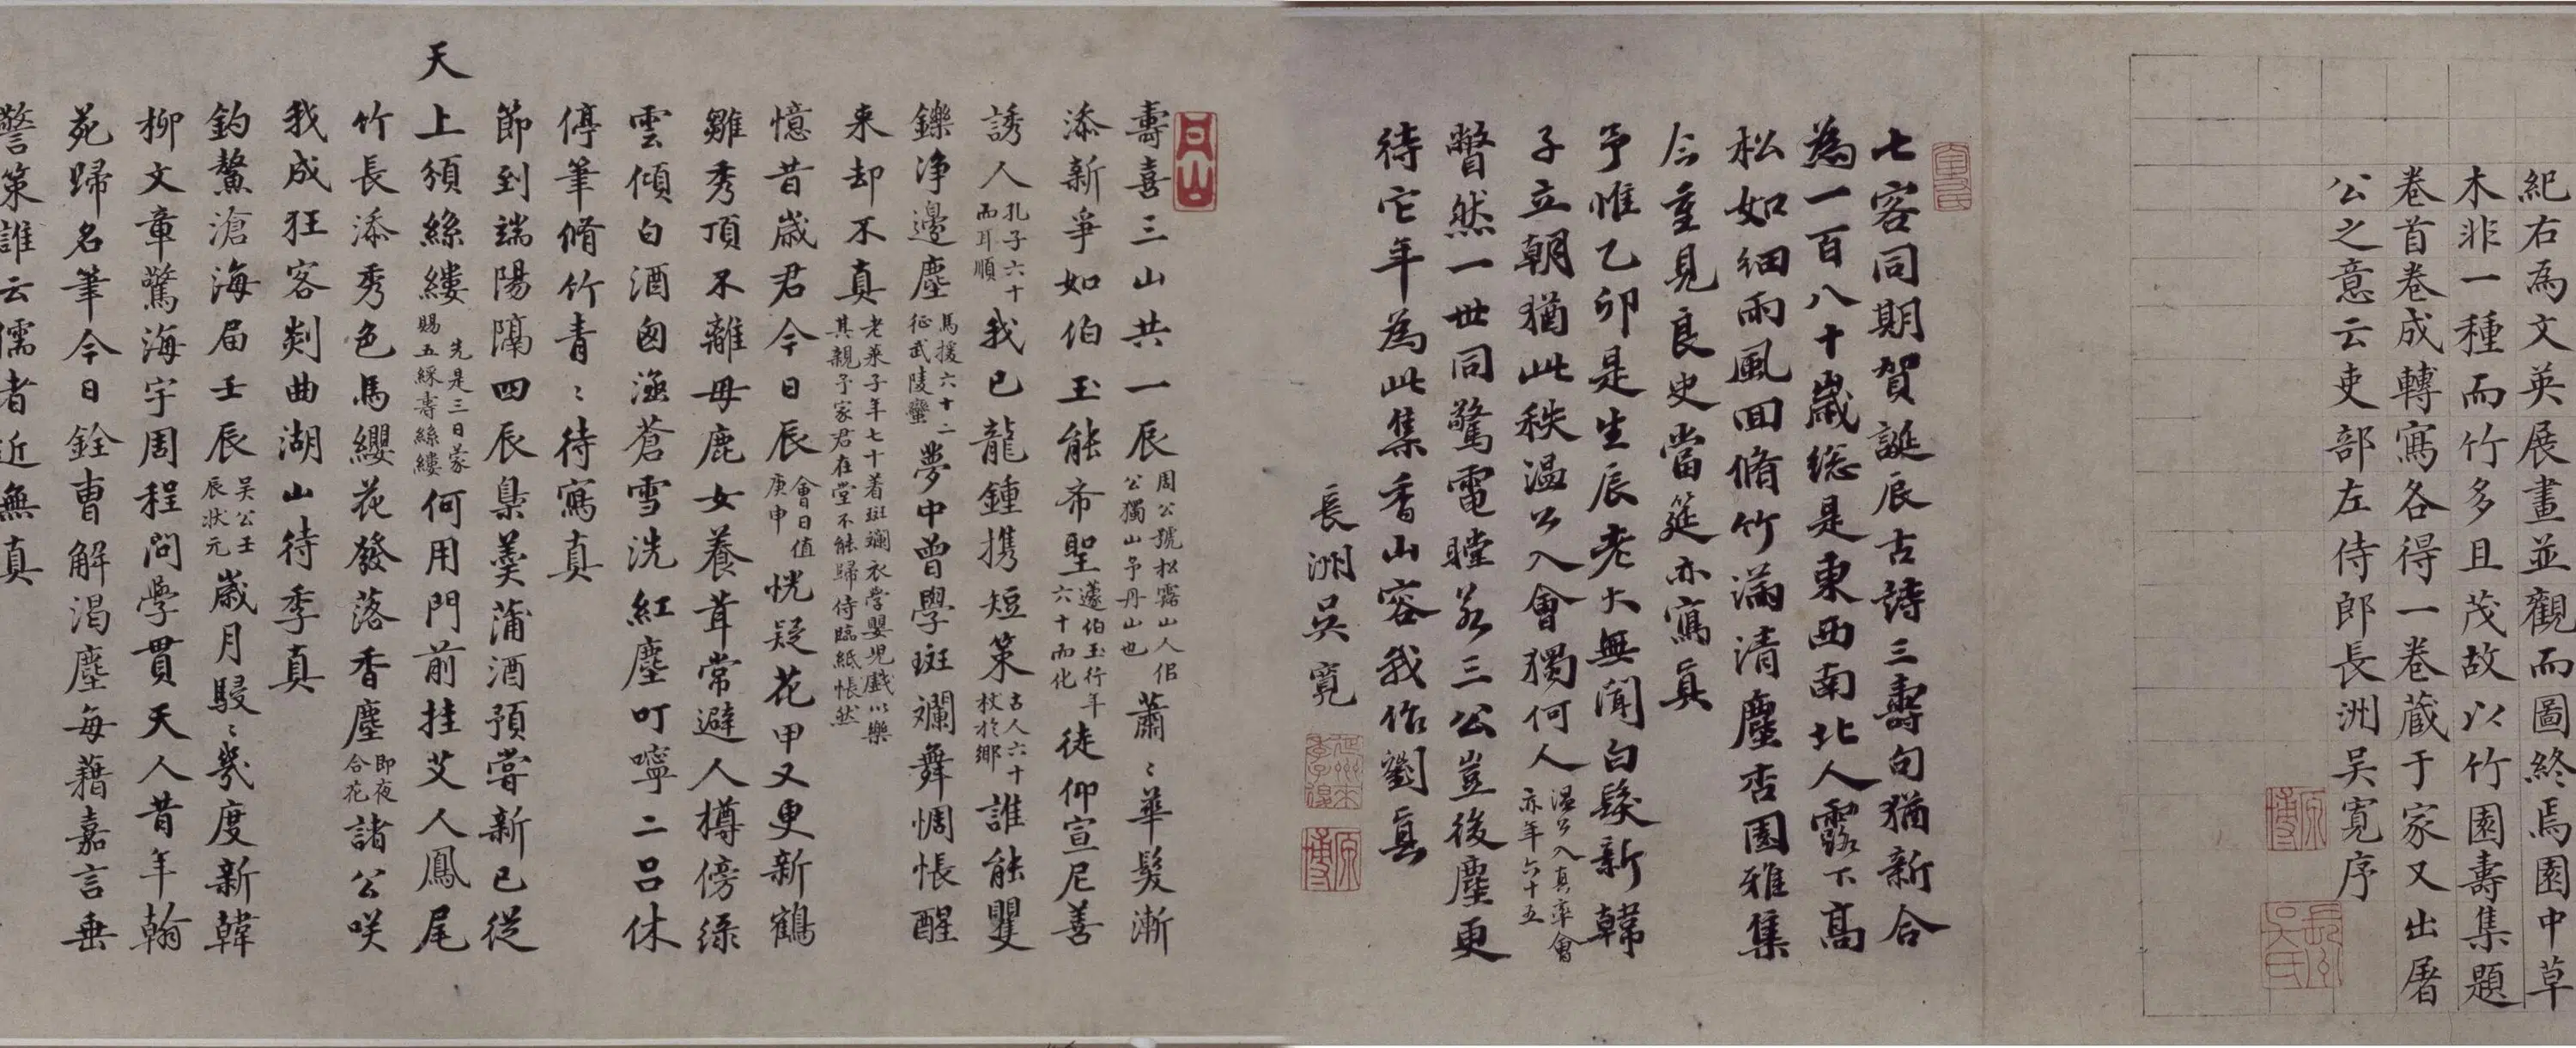 紀右為文英展畫並觀而圖終焉園中草
木非一種而竹多且茂故以竹園壽集題
卷首卷成轉寫各得一卷藏于家又出屠
公之意云吏部左侍郎長洲吳寬序
七客同期賀誕辰古詩三壽句猶新合
為一百八十歲總是東西南北人露下高
松如細雨風回脩竹滿清塵杏園雅集
今重見良史當筵亦寫真
予惟乙卯是生辰老大無聞白髮新韓
子立朝猶此秩溫公入會獨何人溫公入真率會亦年六十五
瞥然一世同驚電瞠若三公豈後塵更
待它年為此集香山容我作劉真
長洲吳寬
壽喜三山共一辰周公號松露山人佀公獨山予丹山也蕭〻華髮漸
添新爭如伯玉能希聖蘧伯玉行年六十而化徒仰宣尼善
誘人孔子六十而耳順我已龍鍾攜短策古人六十杖於鄉誰能矍
鑠淨邊塵馬援六十二征武陵蠻夢中曾學斑斕舞惆悵醒
來却不真老萊子年七十着斑斕衣学嬰兒戲以樂其親予家君在堂不能歸侍臨紙悵然
憶昔歲君今日辰會日值庚申恍疑花甲又更新鶴
雛秀頂不離母鹿女養茸常避人樽傍綠
雲傾白酒匳溢蒼雪洗紅塵叮嚀二呂休
停筆脩竹青〻待寫真
節到端陽隔四辰梟羹蒲酒預嘗新已從
天上頒絲縷先是三日蒙賜五綵壽絲縷何用門前挂艾人鳳尾
竹長添秀色馬纓花發落香塵即夜合花諸公咲
我成狂客剡曲湖山待季真
釣鰲滄海屆壬辰吳公壬辰狀元歲月駸〻幾度新韓
柳文章驚海宇周程問學貫天人昔年翰
苑歸名筆今日銓曹解渴塵每藉嘉言垂
警策誰云儒者近無真